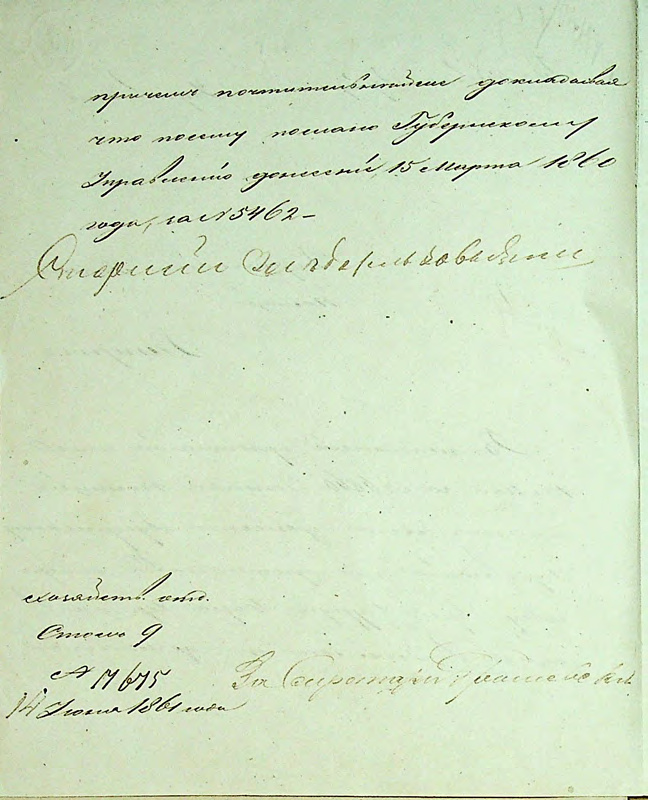 причемъ почтительнѣйше докладывая
что посему послано Губернскому
Управленію донесеніе 15 Марта 1860
года, за N 5462 –
Старшій
хозяйств. отд.
Столъ 9
N 17675
14 Іюня 1861 года
За